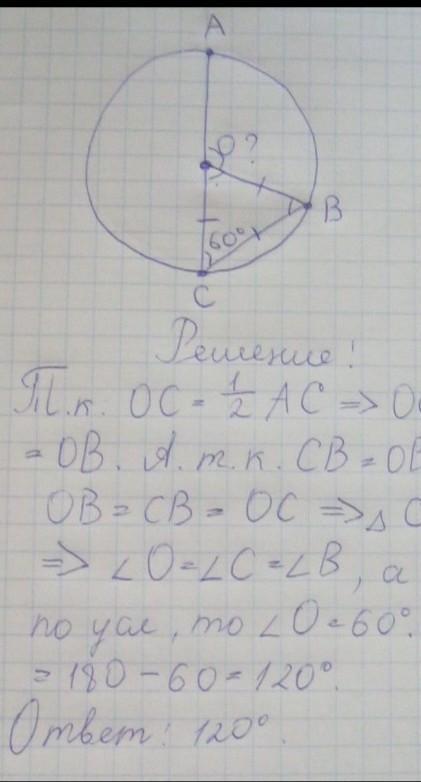 A
O ?
B
60°
C
Решение!
Т.к. OC = 1/2 AC => OC
= OB. А.т.к. CB = OB
OB = CB = OC => △ C
=> ∠O=∠C=∠B, а
по усл, то ∠O=60°.
= 180-60=120°.
Ответ: 120°.